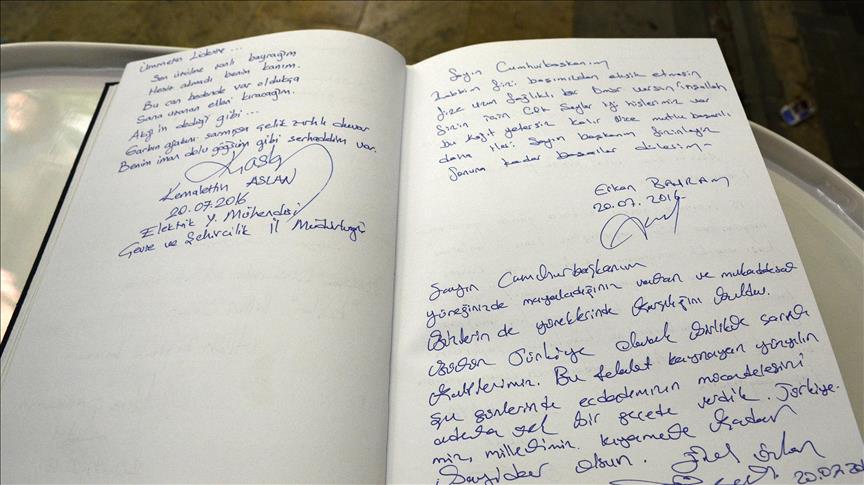 Ümmetin Liderine...
Sen üzülme şanlı bayrağım
Henüz akmadı benim kanım.
Bu can bedende var oldukça
Sana uzanan elleri kıracağım.
Akif'in dediği gibi...
Garbın afakını sarmışsa çelik zırhlı duvar
Benim iman dolu göğsüm gibi serhaddim var.
Kemalettin ASLAN
20.07.2016
Elektrik Y. Mühendisi
Çevre ve Şehircilik İl Müdürlüğü
Sayın Cumhurbaşkanım
Rabbim Sizi başımızdan eksik etmesin
Size uzun Sağlıklı bir ömür versin inşallah
Sizin için çok şeyler iyi hislerimiz var
bu kağıt yetersiz kalır Nice mutlu başarılı
daha Sayın başkanım Sizinleyiz
Sonuna kadar başarılar dilerim
Erkan BAYRAM
20.07.2016
Sayın Cumhurbaşkanım
yüreğinizde mayaladığınız vatan ve mukaddesat
Bizlerin de yüreklerinde karşılığını buldu.
Bütün Türkiye olarak birlikte
Bu felaket kaynayan yüzyılın
şu günlerinde ecdadımızın mücadelesini
adeta tek bir gecede verdik. Türkiye-
miz, milletimiz kıyamete kadar
Payidar olsun.
20.07.2016